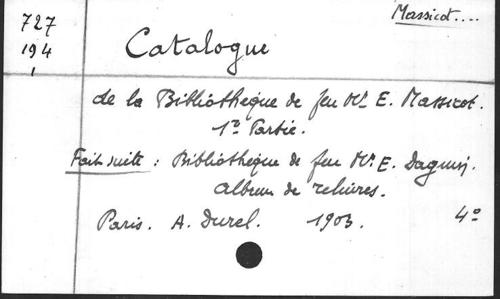 Massicot....
727
194
1
Catalogue
de la Bibliothèque de feu Mr E. Massicot.
1e Partie.
Fait suite : Bibliothèque de feu Mr. E. Daguin.
Album de reliures.
Paris. A. Durel. 1903. 4o